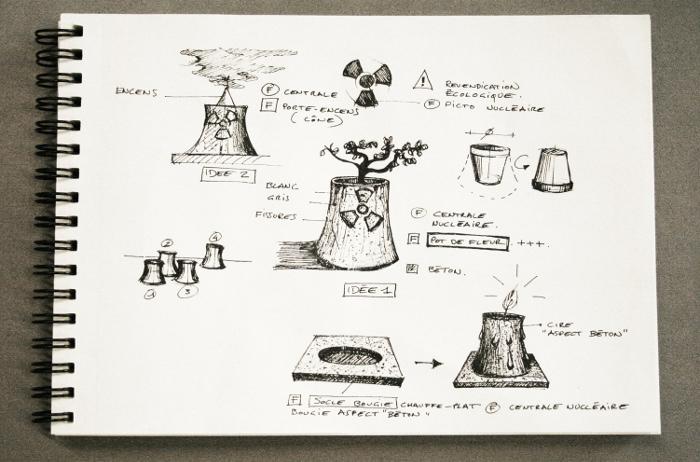 ENCENS
F CENTRALE
F PORTE-ENCENS
(CÔNE)
IDEE 2
REVENDICATION
ÉCOLOGIQUE.
F PICTO NUCLÉAIRE
BLANC
GRIS
FISSURES
F CENTRALE
NUCLÉAIRE.
F POT DE FLEUR +++.
M BÉTON.
IDÉE 1
1
2
3
4
CIRE
"ASPECT BÉTON"
F SOCLE BOUGIE CHAUFFE-PLAT
BOUGIE ASPECT "BÉTON"
F CENTRALE NUCLÉAIRE